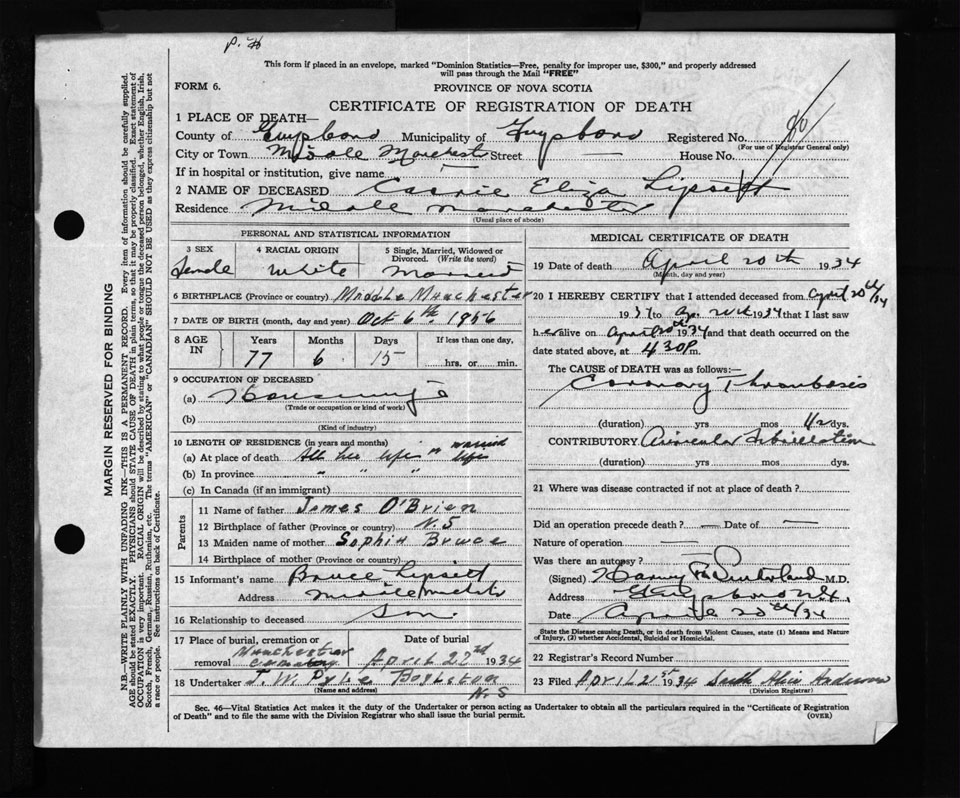 P. H
This form if placed in an envelope, marked "Dominion Statistics—Free, penalty for improper use, $300," and properly addressed
will pass through the Mail "FREE"
FORM 6.
PROVINCE OF NOVA SCOTIA
CERTIFICATE OF REGISTRATION OF DEATH
1 PLACE OF DEATH—
County of Guysboro Municipality of Guysboro Registered No.
(For use of Registrar General only)
City or Town Middle Manchester Street — House No.
If in hospital or institution, give name —
2 NAME OF DECEASED Cassie Eliza Lipsett
Residence Middle Manchester
(Usual place of abode)
PERSONAL AND STATISTICAL INFORMATION
3 SEX 4 RACIAL ORIGIN 5 Single, Married, Widowed or Divorced. (Write the word)
Female White Married
6 BIRTHPLACE (Province or country) Middle Manchester
7 DATE OF BIRTH (month, day and year) Oct 6th 1956
8 AGE IN Years Months Days If less than one day,
77 6 15 hrs. or min.
9 OCCUPATION OF DECEASED
(a) Housewife
(Trade or occupation or kind of work)
(b)
(Kind of industry)
10 LENGTH OF RESIDENCE (in years and months)
(a) At place of death All her life married life
(b) In province " " "
(c) In Canada (if an immigrant)
Parents
11 Name of father James O'Brien
12 Birthplace of father (Province or country) N.S
13 Maiden name of mother Sophia Bruce
14 Birthplace of mother (Province or country)
15 Informant's name Bruce Lipsett
Address Middle Manchester
16 Relationship to deceased Son.
17 Place of burial, cremation or removal Manchester Cemetery Date of burial April 22nd 1934
18 Undertaker J. W. Pyle Boylston N.S
(Name and address)
MEDICAL CERTIFICATE OF DEATH
19 Date of death April 20th 1934
(Month, day and year)
20 I HEREBY CERTIFY that I attended deceased from April 20th/34
1934 to Ap. 20th 1934 that I last saw
her alive on April 20th 1934 and that death occurred on
date stated above, at 4 30 P m.
The CAUSE of DEATH was as follows:—
Coronary Thrombosis
(duration) yrs mos dys.
CONTRIBUTORY. Auricular Fibrillation
(duration) yrs mos dys.
21 Where was disease contracted if not at place of death?
Did an operation precede death? — Date of —
Nature of operation —
Was there an autopsy?
(Signed) Sutherland M.D.
Address Guysboro N.S.
Date April 20th/34
State the Disease causing Death, or in death from Violent Causes, state (1) Means and Nature
of Injury, (2) whether Accidental, Suicidal or Homicidal.
22 Registrar's Record Number
23 Filed April 21st 1934
(Division Registrar)
Sec. 46—Vital Statistics Act makes it the duty of the Undertaker or person acting as Undertaker to obtain all the particulars required in the "Certificate of Registration
of Death" and to file the same with the Division Registrar who shall issue the burial permit.
(OVER)
MARGIN RESERVED FOR BINDING
N.B.—WRITE PLAINLY WITH UNFADING INK—THIS IS A PERMANENT RECORD. Every item of information should be carefully supplied.
AGE should be stated EXACTLY. PHYSICIANS should STATE CAUSE OF DEATH in plain terms, so that it may be properly classified. Exact statement of
OCCUPATION is very important. RACIAL ORIGIN will be described by stating to what people or tongue the deceased person belonged, whether English, Irish,
Scotch, French, German, Russian, Ruthenian, etc. The terms "AMERICAN" or "CANADIAN" SHOULD NOT BE USED as they express citizenship but not
a race or people. See instructions on back of Certificate.